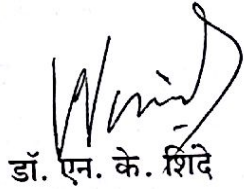 डॉ. एन. के. शिंदे